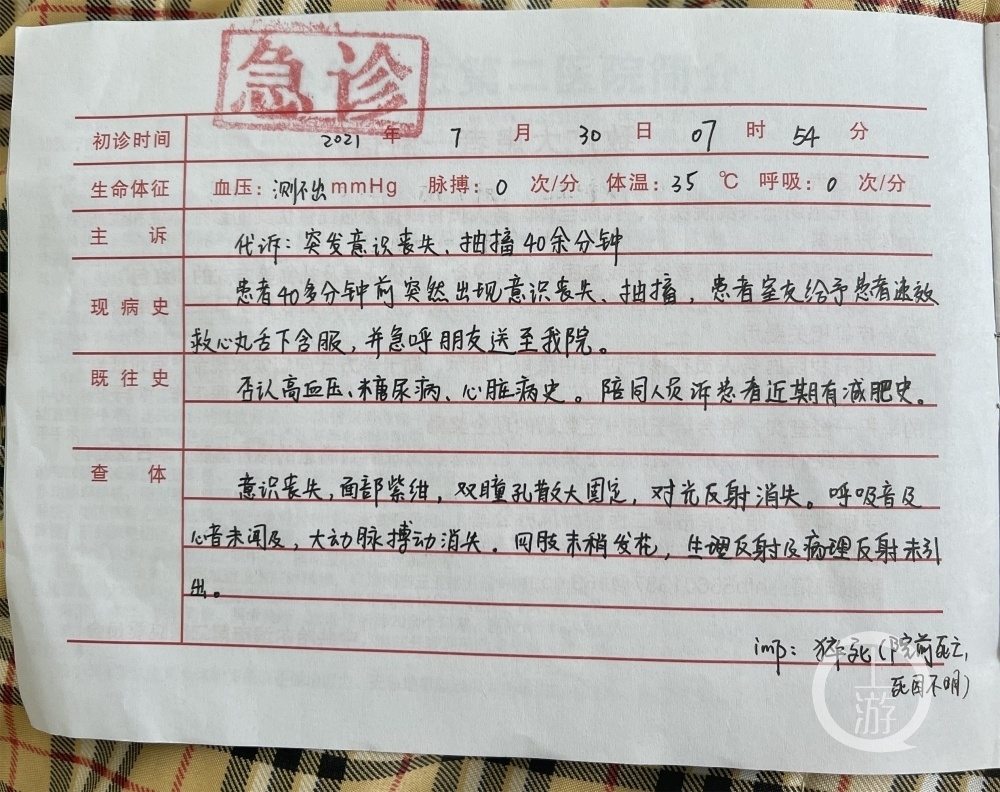 急诊
初诊时间 2021 年 7 月 30 日 07 时 54 分
生命体征 血压：测不出 mmHg 脉搏：0 次/分 体温：35 ℃ 呼吸：0 次/分
主诉 代诉：突发意识丧失、抽搐40余分钟
患者40多分钟前突然出现意识丧失、抽搐，患者室友给予患者速效
现病史
救心丸舌下含服，并急呼朋友送至我院。
既往史 否认高血压、糖尿病、心脏病史。陪同人员诉患者近期有减肥史。
查体 意识丧失，面部紫绀，双瞳孔散大固定，对光反射消失。呼吸音及
心音未闻及，大动脉搏动消失。四肢末稍发花，生理反射及病理反射未引
出。
imp：猝死（院前死亡，
死因不明）
上游